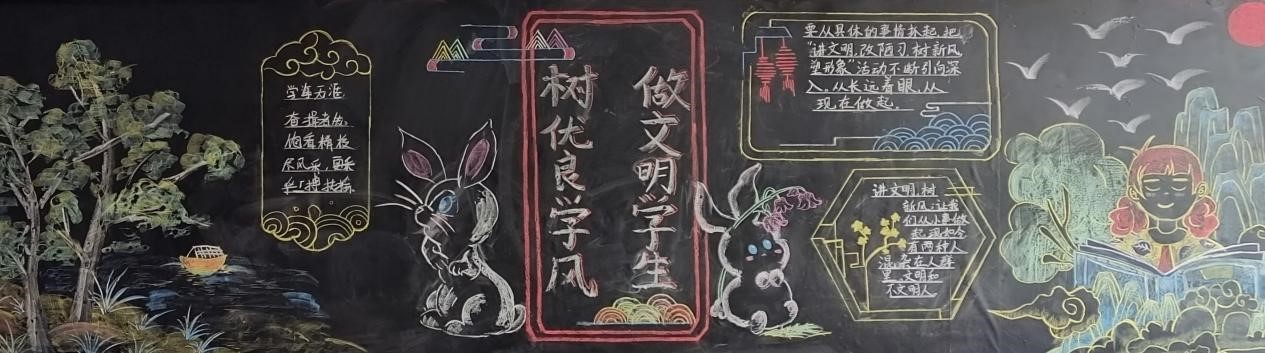 学海无涯
做文明学生
树优良学风
要从具体的事情抓起,把
“讲文明,改陋习,树新风
塑形象”活动不断引向深
入。从长远着眼,从
现在做起。
讲文明,树
新风,让我
们从小事做
起,现如今
有两种人
混杂在人群
里,文明和
不文明人